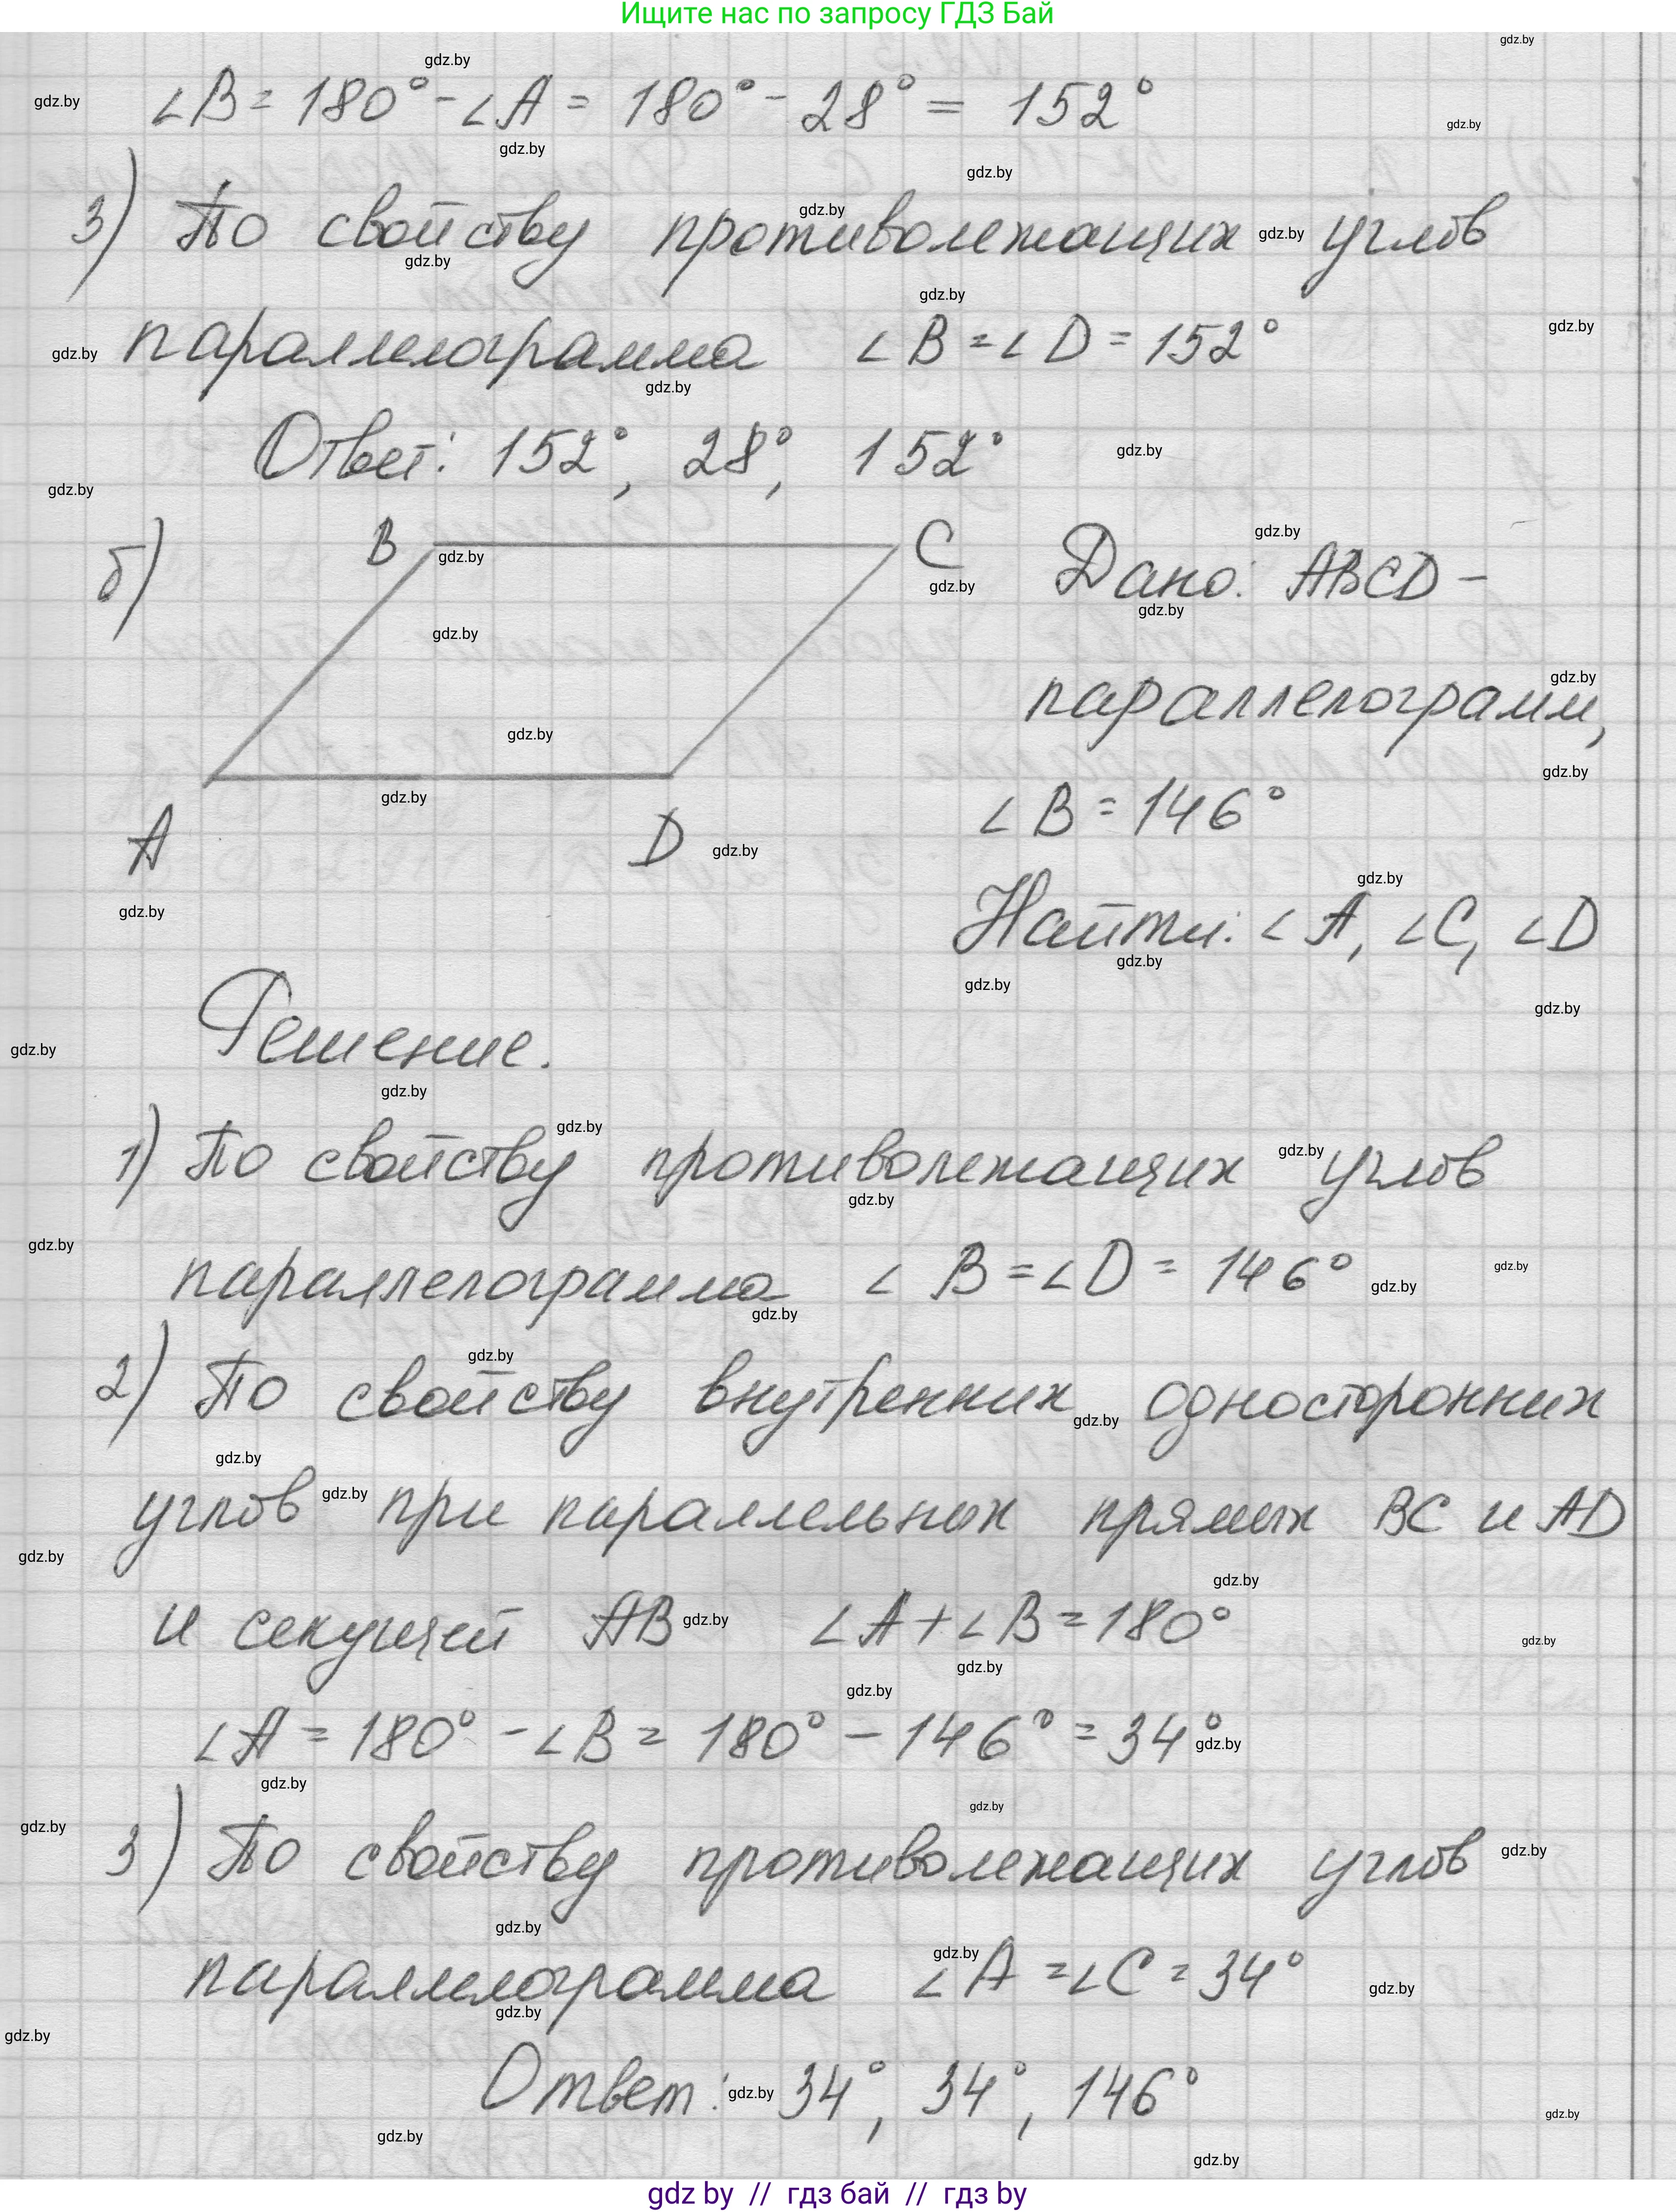 Ищите нас по запросу ГДЗ Бай
∠B = 180° - ∠A = 180° - 28° = 152°
3) По свойству противолежащих углов
параллелограмма ∠B = ∠D = 152°
Ответ: 152°, 28°, 152°
б)
B
C
A
D
Дано: ABCD –
параллелограмм,
∠B = 146°
Найти: ∠A, ∠C, ∠D
Решение.
1) По свойству противолежащих углов
параллелограмма ∠B = ∠D = 146°
2) По свойству внутренних односторонних
углов при параллельных прямых BC и AD
и секущей AB ∠A + ∠B = 180°
∠A = 180° - ∠B = 180° - 146° = 34°
3) По свойству противолежащих углов
параллелограмма ∠A = ∠C = 34°
Ответ: 34°, 34°, 146°
gdz by // гдз бай // гдз by